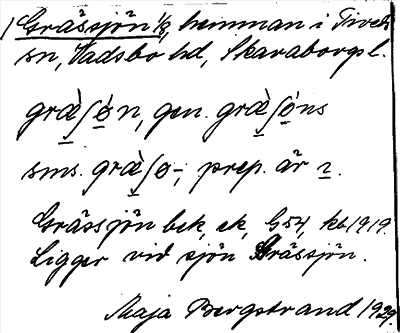 Grässjön 1/8, hemman i Tiveds
sn, Vadsbo hd, Skaraborgs l.
græ̀ʃø̣n, gen. græ̀ʃø̣ns
sms. græ̀ʃø-, prep. är
Grässjön bek, ek, G54, kb 1919.
Ligger vid sjön Grässjön.
Maja Bergstrand 1929.